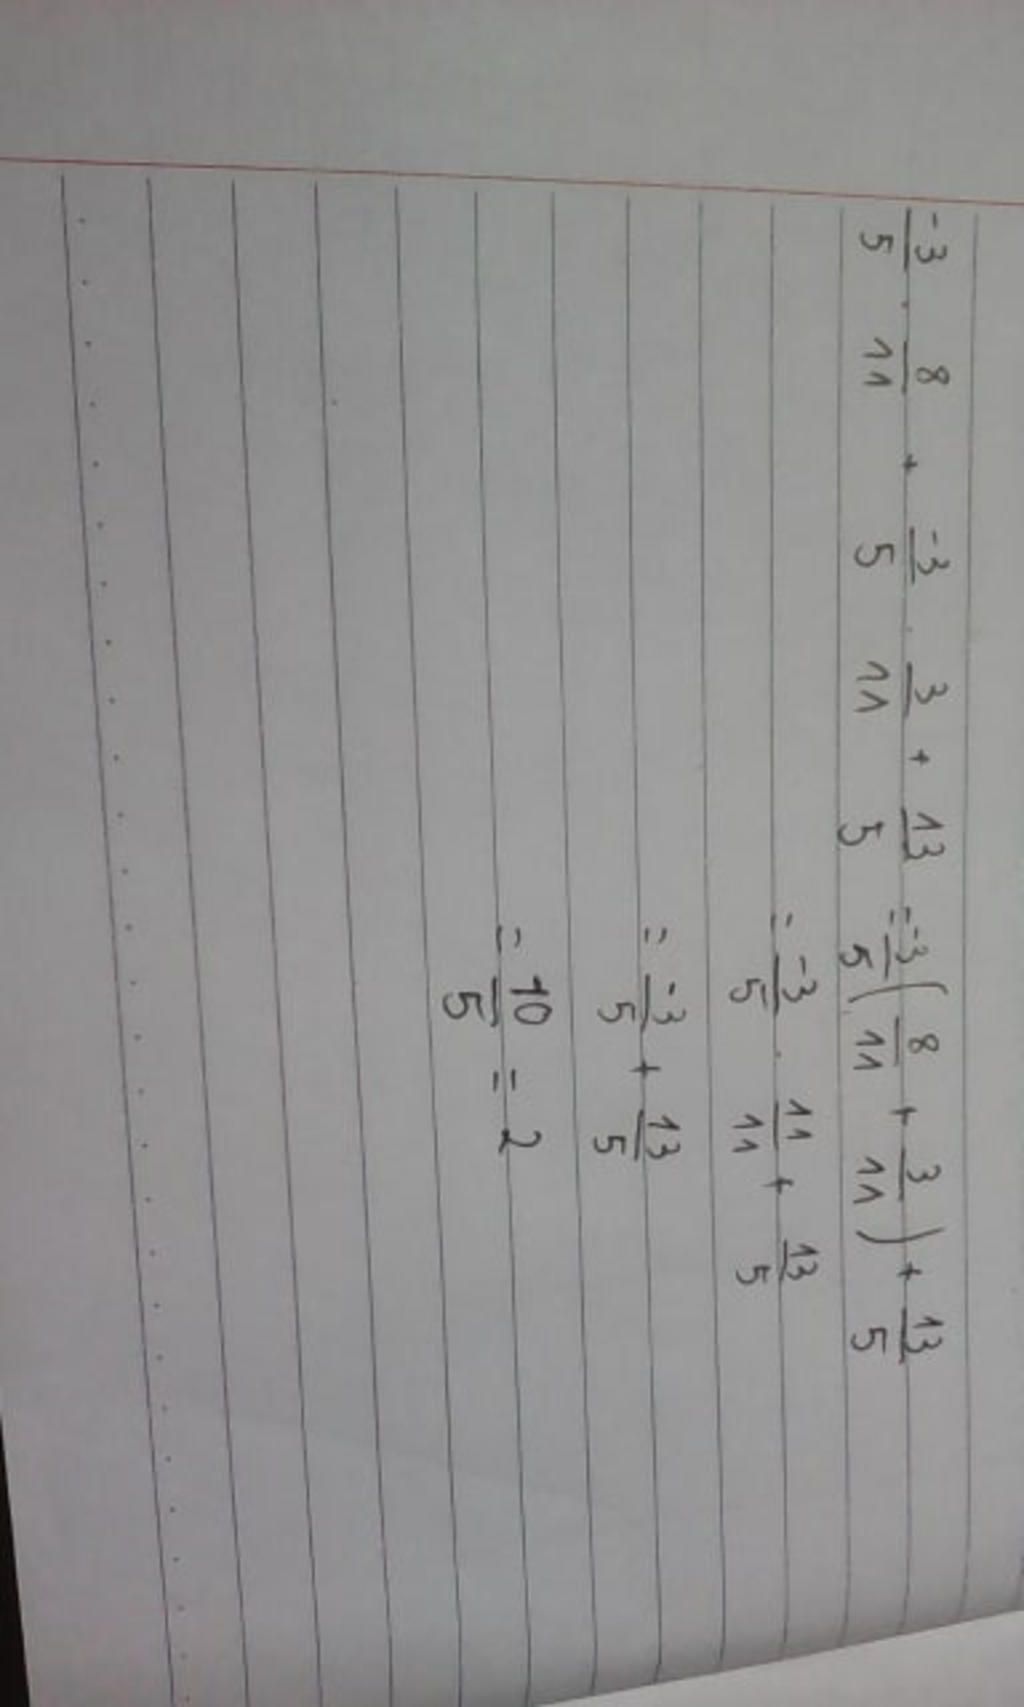 -3/5 . 8/11 + -3/5 . 3/11 + 13/5 = -3/5 ( 8/11 + 3/11 ) + 13/5
= -3/5 . 11/11 + 13/5
= -3/5 + 13/5
= 10/5 = 2